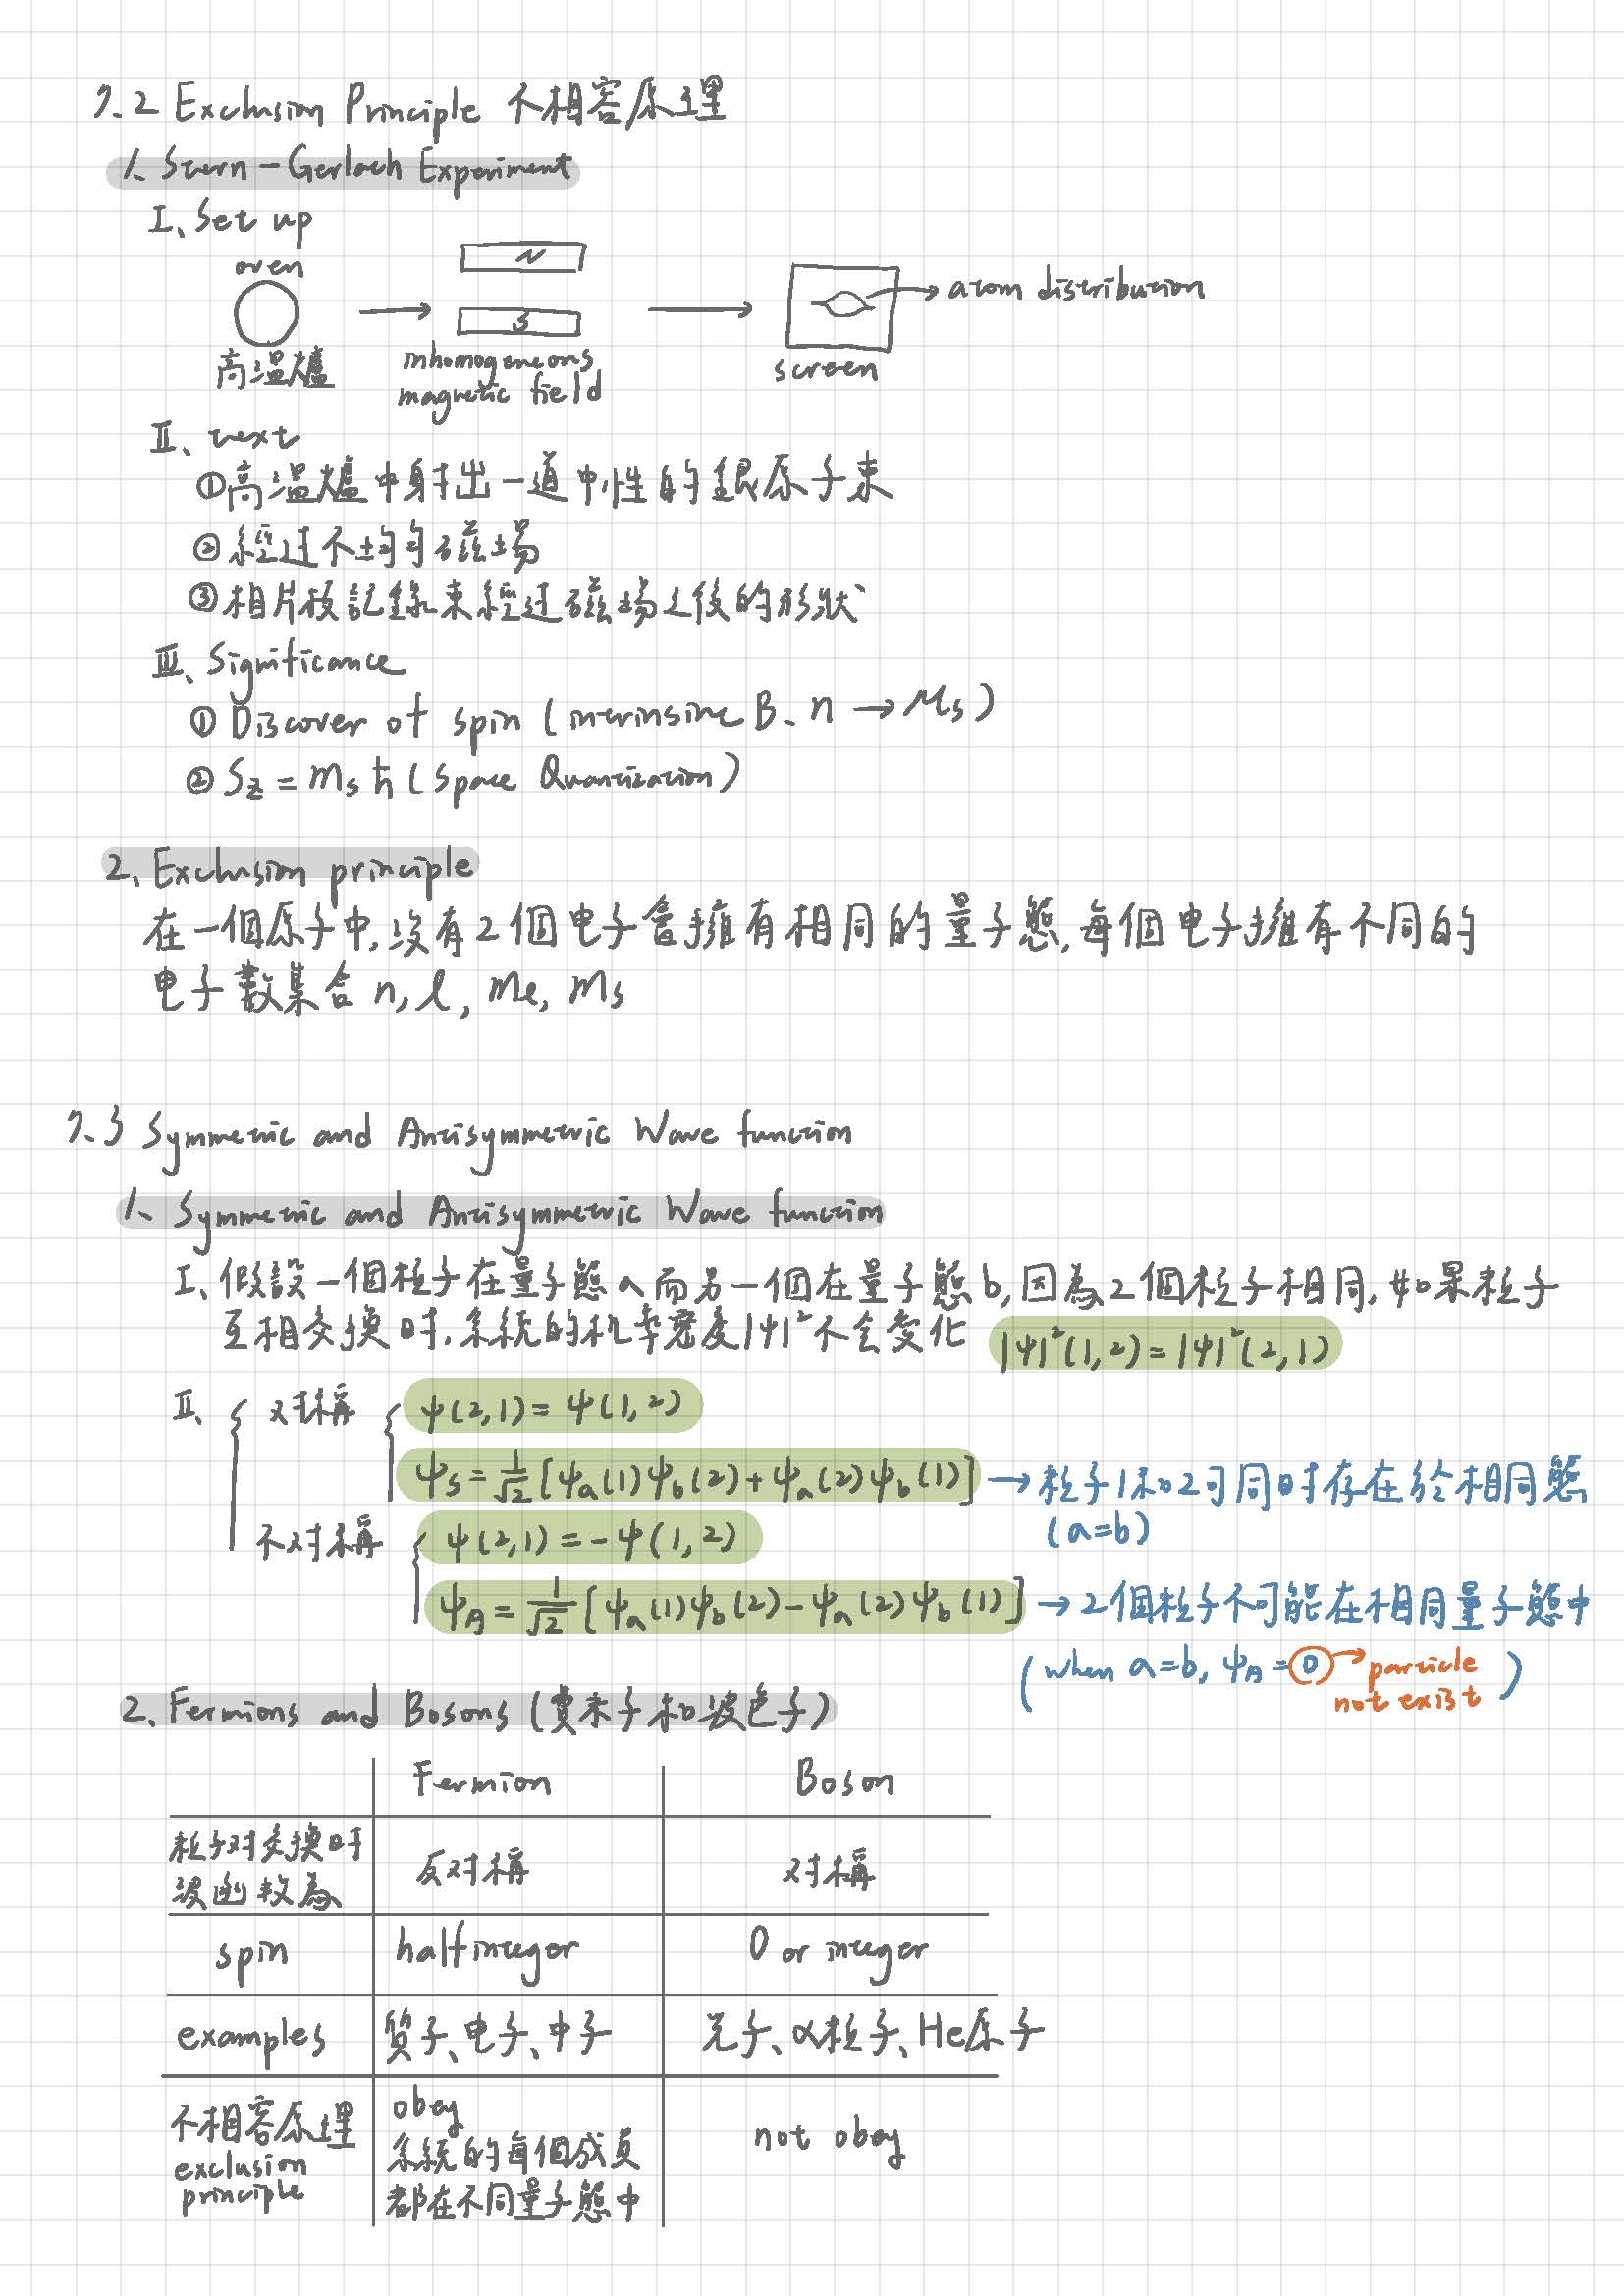 7.2 Exclusion Principle 不相容原理
1、Stern-Gerlach Experiment
I、Set up
oven
N
S
高溫爐
inhomogeneous
magnetic field
screen
atom distribution
II、text
①高溫爐中射出一道中性的銀原子束
②經过不均勻磁场
③相片板記錄束經过磁场之後的形狀
III、Significance
① Discover of spin (intrinsinc B、n → Ms)
② Sz = ms ħ (Space Quantization)
2、Exclusion principle
在一個原子中,沒有2個电子會擁有相同的量子態,每個电子擁有不同的
电子數集合 n, l, ml, ms
7.3 Symmetric and Antisymmetric Wave function
1、Symmetric and Antisymmetric Wave function
I、假設一個粒子在量子態a而另一個在量子態b,因為2個粒子相同,如果粒子
互相交换时,系統的机率密度|ψ|²不会变化 |ψ|²(1,2)=|ψ|²(2,1)
II、 对稱 ψ(2,1)= ψ(1,2)
ψs = 1/√2 [ψa(1)ψb(2)+ψa(2)ψb(1)] → 粒子1和2可同时存在於相同態
(a=b)
不对稱 ψ(2,1)=-ψ(1,2)
ψA = 1/√2 [ψa(1)ψb(2)-ψa(2)ψb(1)] → 2個粒子不可能在相同量子態中
(when a=b, ψA=0 → particle
not exist)
2、Fermions and Bosons (費米子和波色子)
Fermion Boson
粒子对交换时
波函数為
反对稱 对稱
spin half integer 0 or integer
examples 質子、电子、中子 光子、α粒子、He原子
不相容原理
exclusion
principle
obey
系統的每個成員
都在不同量子態中
not obey